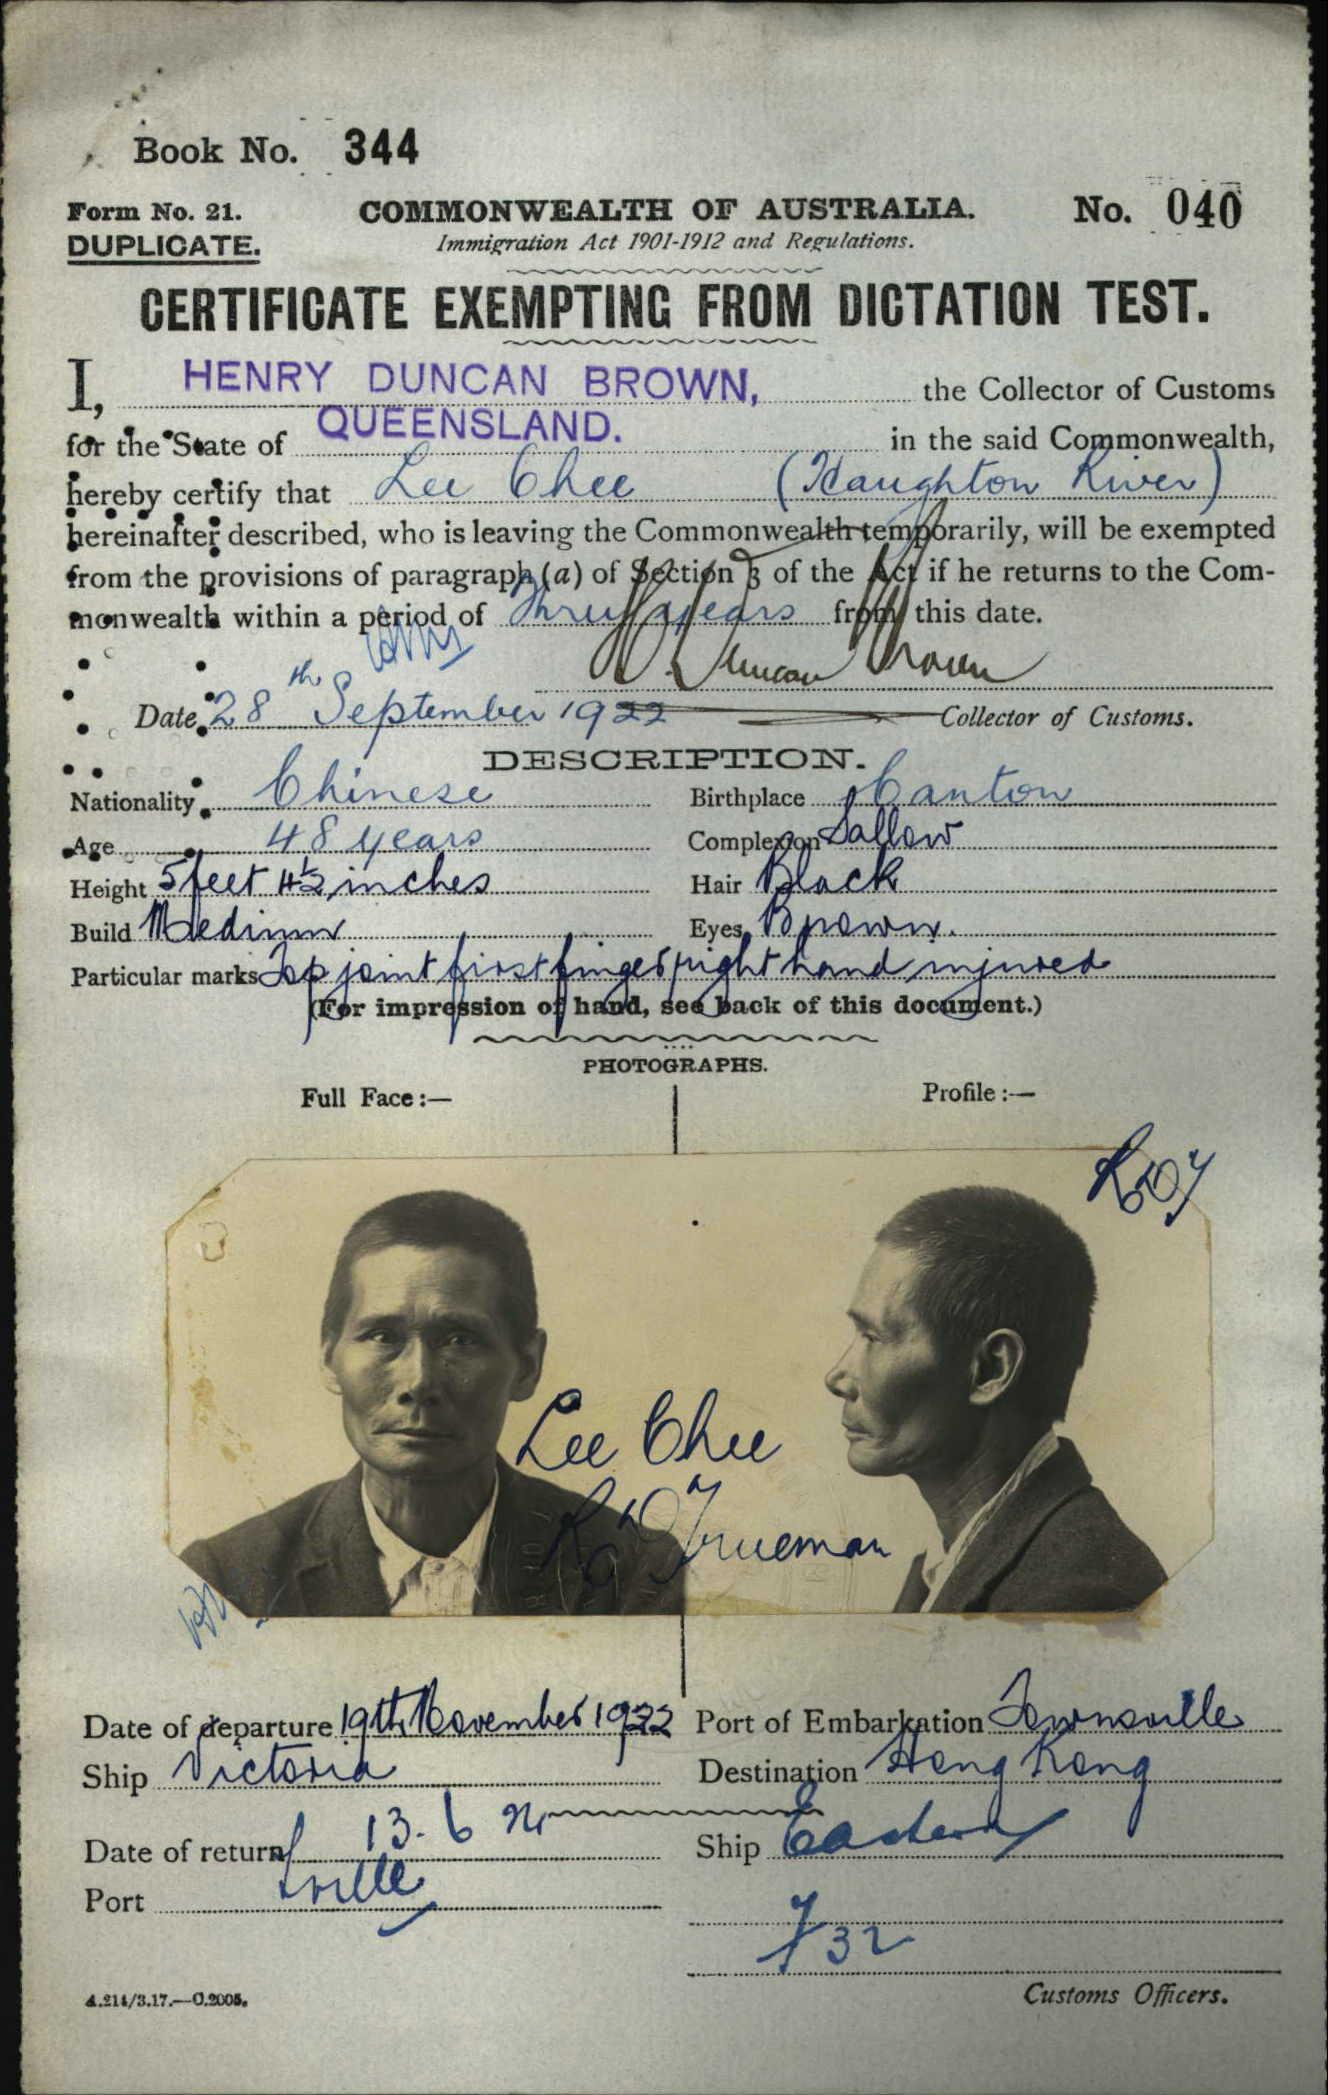 Book No. 344
Form No. 21. COMMONWEALTH OF AUSTRALIA. No. 040
DUPLICATE. Immigration Act 1901-1912 and Regulations.
CERTIFICATE EXEMPTING FROM DICTATION TEST.
I, HENRY DUNCAN BROWN, the Collector of Customs
for the State of QUEENSLAND. in the said Commonwealth,
hereby certify that Lee Chee (Haughton River)
hereinafter described, who is leaving the Commonwealth temporarily, will be exempted
from the provisions of paragraph (a) of Section 3 of the Act if he returns to the Com-
monwealth within a period of Three years from this date.
H. Duncan Brown
Date 28th September 1922 Collector of Customs.
DESCRIPTION.
Nationality Chinese Birthplace Canton
Age 48 years Complexion Sallow
Height 5 feet 4½ inches Hair Black
Build Medium Eyes Brown.
Particular marks Top joint first finger right hand injured
(For impression of hand, see back of this document.)
PHOTOGRAPHS.
Full Face:— Profile:—
Lee Chee
Trueman
Date of departure 19th November 1922 Port of Embarkation Townsville
Ship Victoria Destination Hong Kong
Date of return 13. 6 24 Ship Eastern
Port Tville
32
A.214/3.17.—C.2005. Customs Officers.